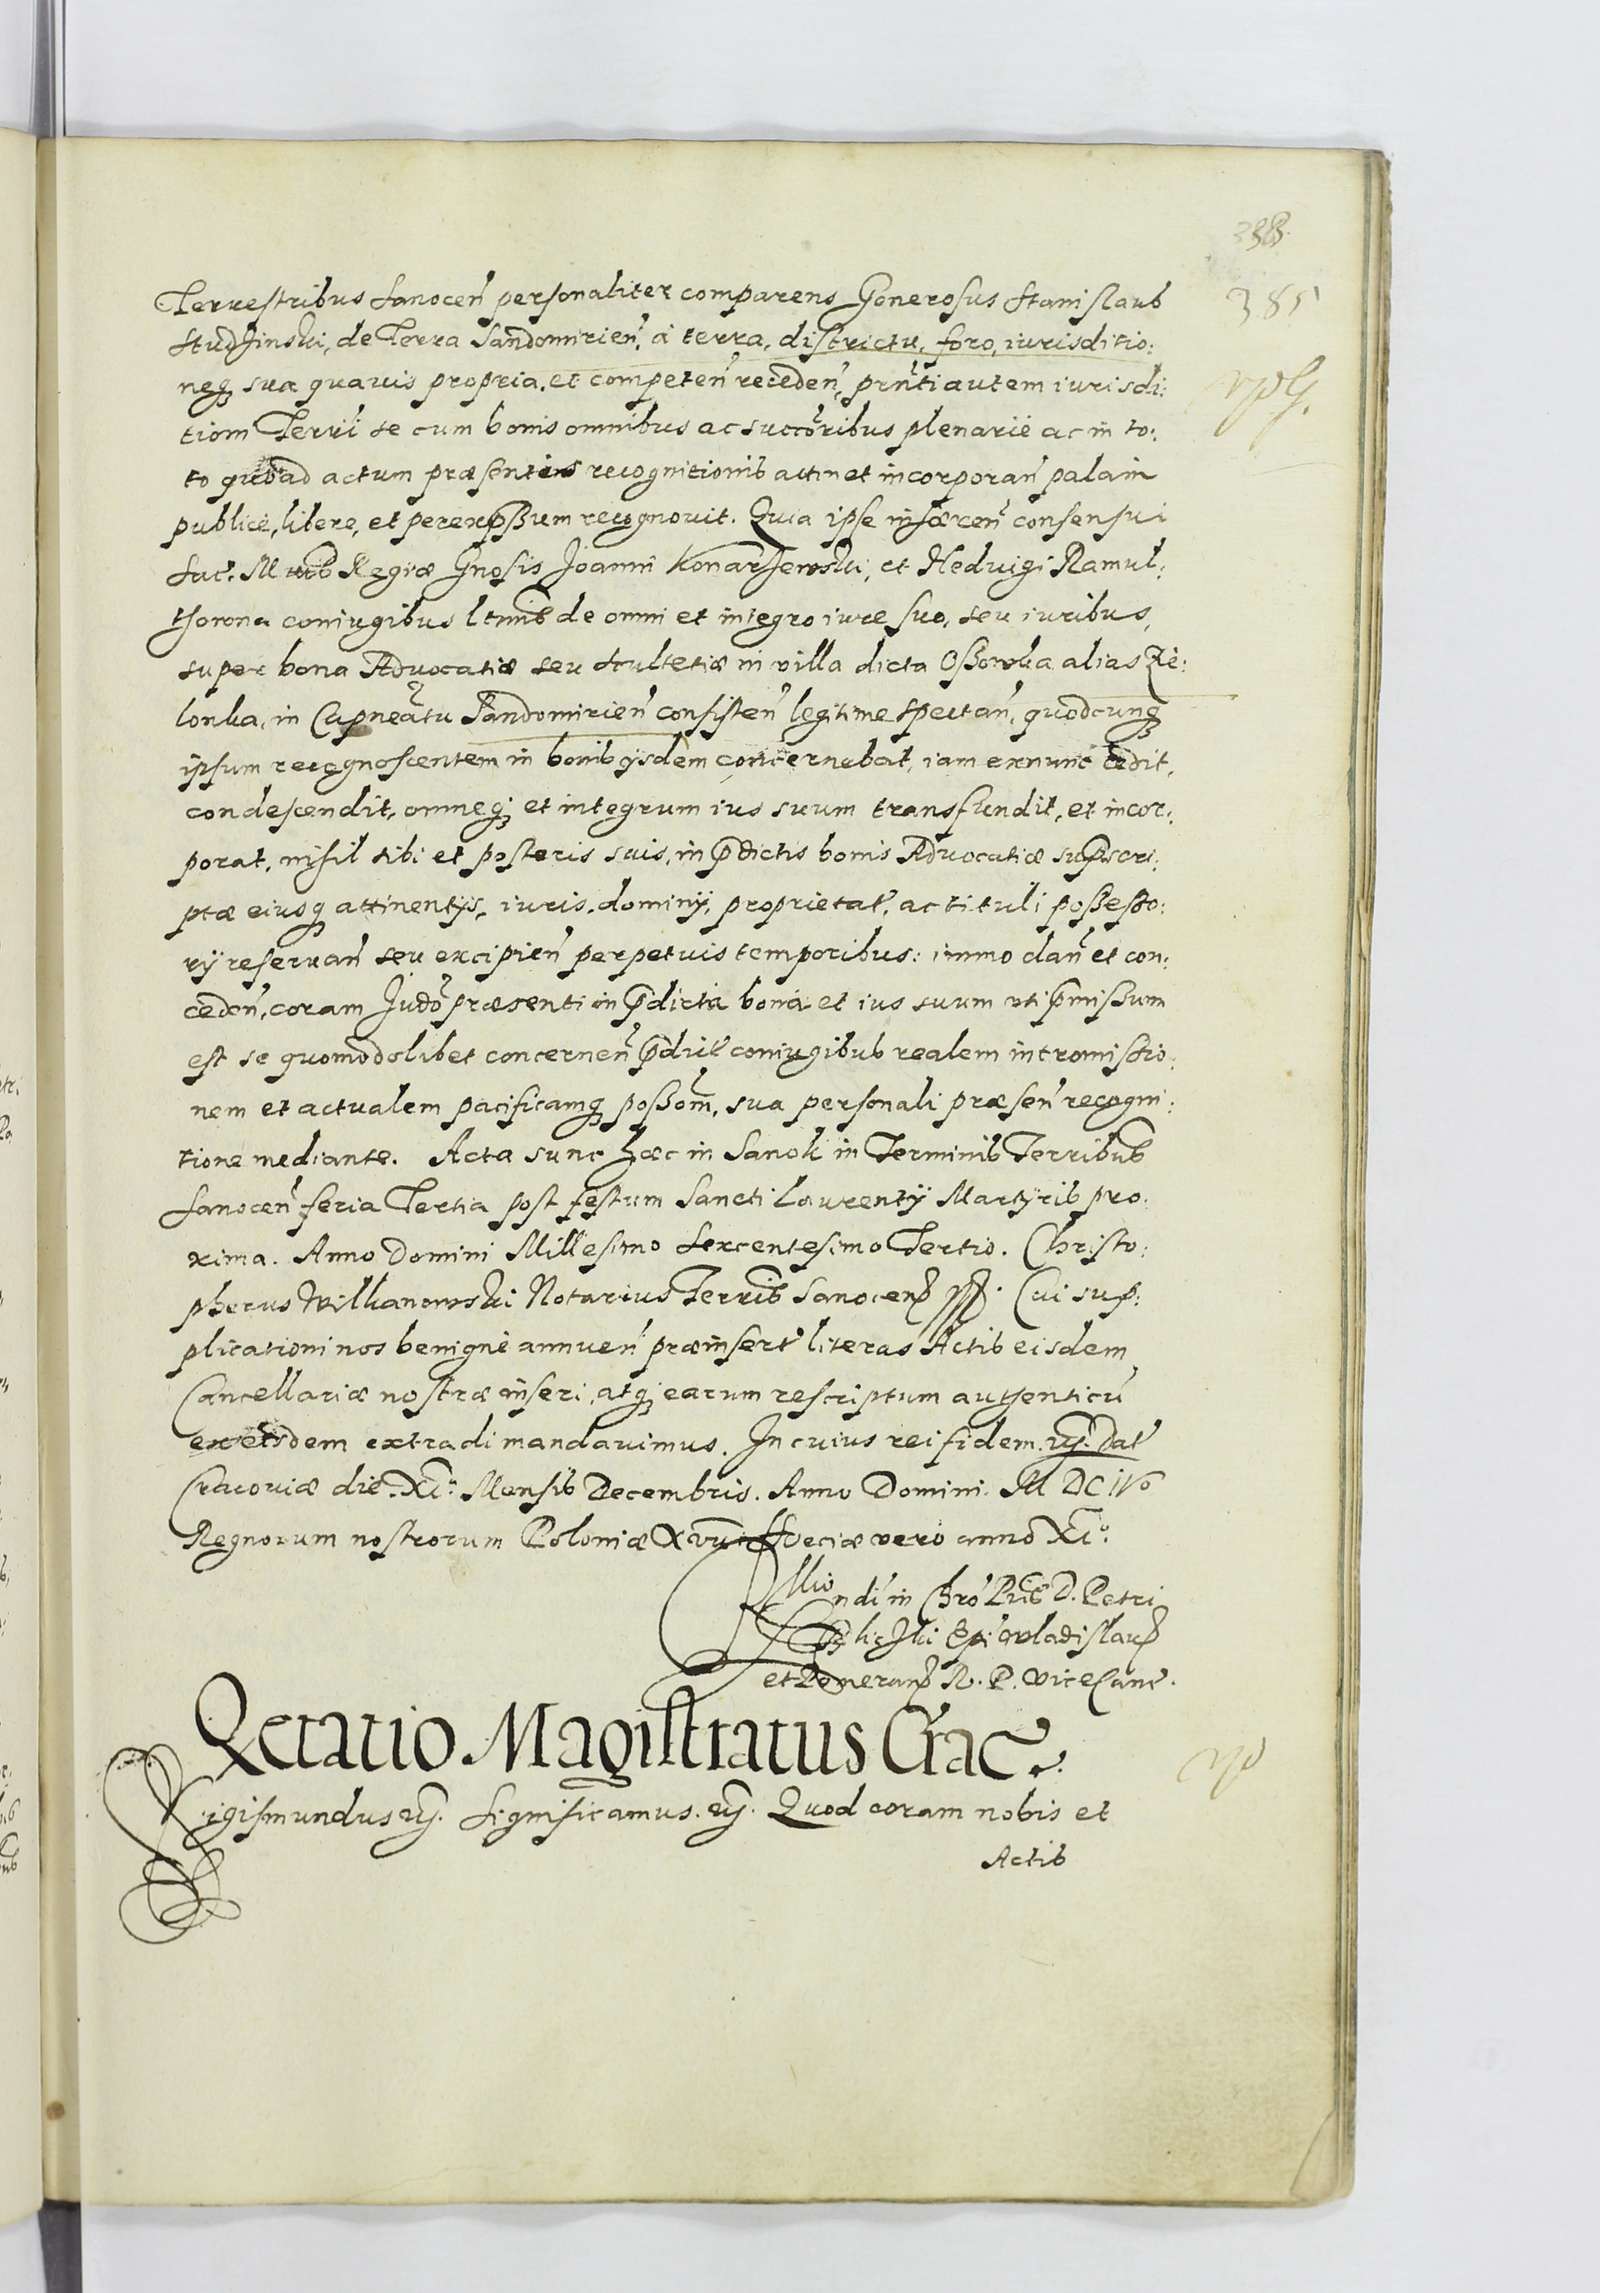 385
Terrestribus Sanocen̄ personaliter comparens Generosus Stanislaus
Studzinski, de Terra Sandomirien̄, à terra, districtu, foro, iurisditio:
neq; sua quavis propria, et competen̄ receden̄, prn̄ti autem iurisdi:
tiom Terrˡi se cum bonis omnibus ac succōribus plenariè ac in to:
to quoad actum præsentis recognitionis attinet incorporan̄ palam
publicè, libere, et perexp̄ssum recognovit. Quia ipse inhæren̄ consensui
Sac. Mttis Regiæ Gnosis Joanni Konarzewski, et Hedvigi Ramul:
thowna coniugibus ltmis de omni et integro iure suo, seu iuribus,
super bona Advocatiæ seu Scultetiæ in villa dicta Ossowka alias Ze:
lonka, in Capneātu Sandomirien̄ consisten̄ legitime spectan̄, quodcunq;
ipsum recognoscentem in bonis ijsdem concernebat, iam exnunc cedit,
condescendit, omneq; et integrum ius suum transfundit, et incor:
porat, nihil sibi et posteris suis, in p̄dictis bonis Advocatiæ sup̄scri:
ptæ eiusq; attinentijs, iuris, dominij, proprietat, ac tituli possesso:
rij reservan̄ seu excipien̄ perpetuis temporibus: immo dan̄ et con:
ceden̄, coram Judō præsenti in p̄dicta bona et ius suum uti p̄missum
est se quomodolibet concernen̄ p̄dict coniugibus realem intromissio:
nem et actualem pacificamq; possom̄, sua personali præsen̄ recogni:
tione mediante. Acta sunt hæc in Sanok in Terminis Terribus
Sanocen̄ feria Tertia post festum Sancti Laurentij Martyris pro:
xima. Anno Domini Millesimo Sexcentesimo Tertio. Christo:
pherus Wilkanowski Notarius Terris Sanocen̄ ssp. Cui sup:
plicationi nos benignè annuen̄ præinsert literas Actis eisdem
Cancellariæ nostræ inseri, atq; earum rescriptum authenticū
ex eisdem extradi mandavimus. In cuius rei fidem. etc. Dat
Cracoviæ die XI: Mensis Decembris. Anno Domini. M DC IVo
Regnorum nostrorum Poloniæ XVII Sveciæ vero anno XIo.
ndi in Chrō Pris D. Petri
Tylicki Epi Wladislavn̄
et Pomeran̄ R. P. ViceCanc.
Qetatio Magistratus Crac:
Sigismundus etc. Significamus. etc. Quod coram nobis et
Actis